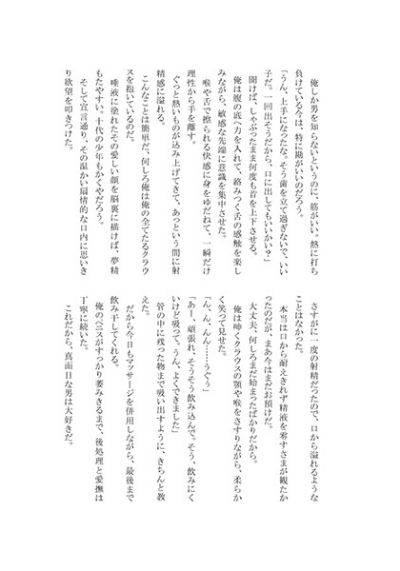 俺しか男を知らないというのに、筋がいい。熱に打ち
負けている今は、特に勘がいいのだろう。
「うん、上手になったな。そう歯を立て過ぎないで、いい
子だ。一回出そうだから、口に出してもいいかい？」
聞けば、しゃぶったまま何度も首を上下させる。
俺は腹の底へ力を入れて、絡みつく舌の感触を楽し
みながら、敏感な先端に意識を集中させた。
喉や舌で擦られる快感に身をゆだねて、一瞬だけ
理性から手を離す。
ぐっと熱いものが込み上げてきて、あっという間に射
精感に溢れる。
こんなことは簡単だ、何しろ俺は俺の全てたるクラウ
スを抱いているのだ。
唾液に塗れたその愛しい顔を脳裏に描けば、夢精
もたやすい。十代の少年もかくやだろう。
そして宣言通り、その温かい扇情的な口内に思いき
り欲望を叩きつけた。
さすがに一度の射精だったので、口から溢れるような
ことはなかった。
本当は口から耐えきれず精液を零すさまが観たか
ったのだが、まあ今はまだお預けだ。
大丈夫、何しろまだ始まったばかりだから。
俺は呻くクラウスの顎や喉をさすりながら、柔らか
く笑って見せた。
「ん、ん、んん……うぐぅ」
「あー、頑張れ、そうそう飲み込んで。そう、飲みにく
いけど吸って。うん、よくできました」
管の中に残った物まで吸い出すように、きちんと教
えた。
だから今日もマッサージを併用しながら、最後まで
飲み干してくれる。
俺のペニスがすっかり萎みきるまで、後処理と愛撫は
丁寧に続いた。
これだから、真面目な男は大好きだ。